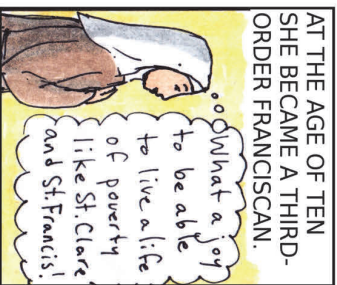 AT THE AGE OF TEN
SHE BECAME A THIRD-
ORDER FRANCISCAN.
What a joy
to be able
to live a life
of poverty
like St. Clare
and St. Francis!